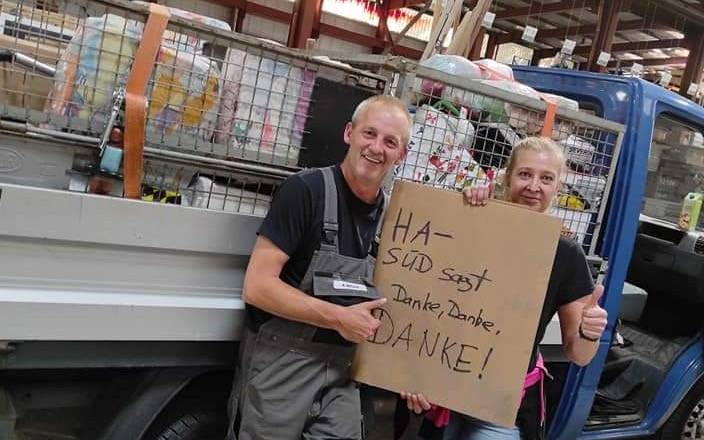 HA-
SÜD sagt
Danke, Danke,
DANKE!